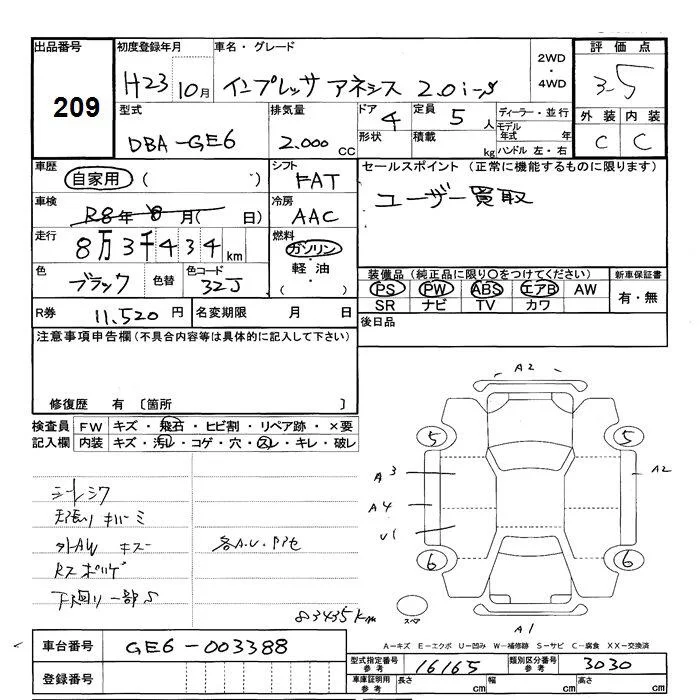 出品番号 初度登録年月 車名・グレード 2WD・4WD 評価点
209 H23 10月 インプレッサ アネシス 2.0i-S 3.5
型式 排気量 ドア 4 定員 5人 ディーラー・並行 外装 内装
DBA-GE6 2.000cc 形状 積載 kg モデル年式 年 C C
ハンドル 左・右
車歴 自家用 ( ) シフト FAT セールスポイント (正常に機能するものに限ります)
車検 R8年 8月( 日) 冷房 AAC ユーザー買取
走行 8万3千434km 燃料 ガソリン
色 ブラック 色替 色コード 32J 軽油 ( ) 装備品(純正品に限り〇をつけてください) 新車保証書
PS PW ABS エアB AW 有・無
SR ナビ TV カワ
R券 11,520円 名変期限 月 日 後日品
注意事項申告欄(不具合内容等は具体的に記入して下さい)
修復歴 有 〔箇所 〕
検査員記入欄 FW キズ・飛石・ヒビ割・リペア跡・×要
内装 キズ・汚レ・コゲ・穴・スレ・キレ・破レ
シートシワ
天張り キバミ
外AW キズ 各A.U.アアセ
下回り一部S
83435km
A2
5 5
A3 A2
A4
U1
6 6
スペア
A1
A-キズ E-エクボ U-凹み W-補修跡 S-サビ C-腐食 XX-交換済
車台番号 GE6-003388
型式指定番号 参考 16165 類別区分番号 参考 3030
登録番号 車庫証明用 参考 長さ cm 幅 cm 高さ cm